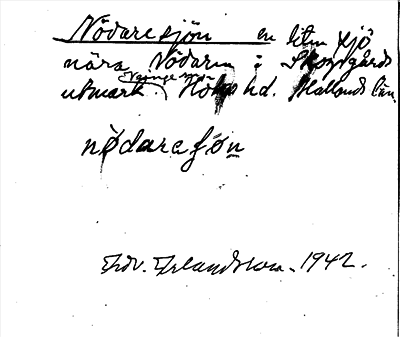 Nödaresjön en liten sjö
nära Nödarn i Skogsgårds
Veinge sn.
utmark. Höks hd. Hallands län.
nødaresøn
Edv. Erlandsson. 1942.